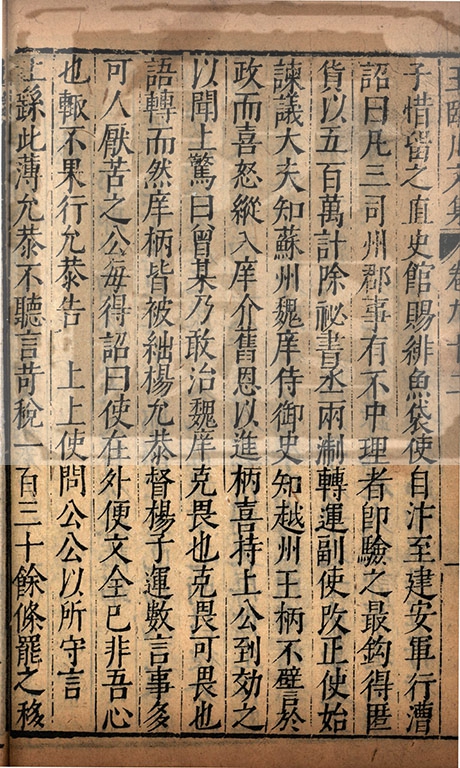 王臨川文集 卷九十二
子惜留之直史館賜緋魚袋使自汴至建安軍行漕
詔曰凡三司州郡事有不中理者即驗之最鈎得匿
貨以五百萬計除祕書丞兩淛轉運副使改正使始
諫議大夫知蘇州魏庠侍御史知越州王柄不譱於
政而喜怒縱入庠介舊恩以進柄喜持上公到効之
以聞上驚曰曾某乃敢治魏庠克畏也克畏可畏也
語轉而然庠柄皆被絀楊允恭督楊子運數言事多
可人厭苦之公每得詔曰使在外便文全已非吾心
也輙不果行允恭告 上上使問公公以所守言
上繇此薄允恭不聽言苛稅一百三十餘條罷之移